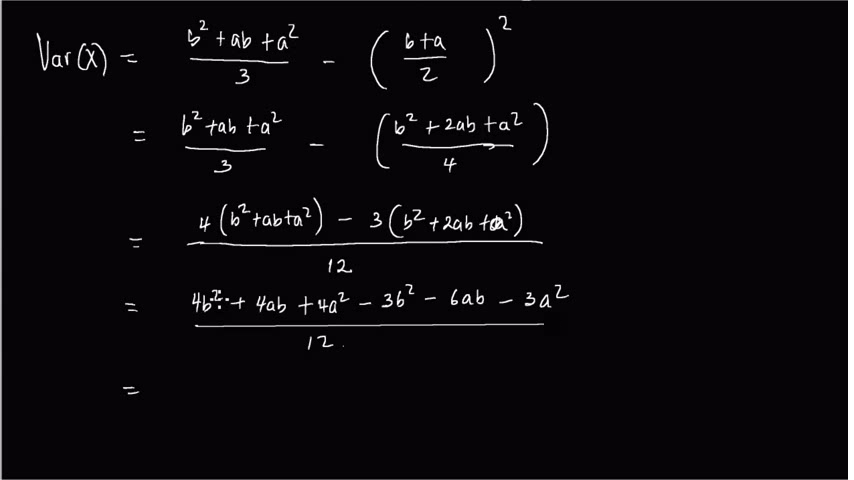 Var(X) = (b² + ab + a²)/3 − ((b+a)/2)²
= (b² + ab + a²)/3 − ((b² + 2ab + a²)/4)
= (4(b² + ab + a²) − 3(b² + 2ab + a²))/12
= (4b² + 4ab + 4a² − 3b² − 6ab − 3a²)/12
=